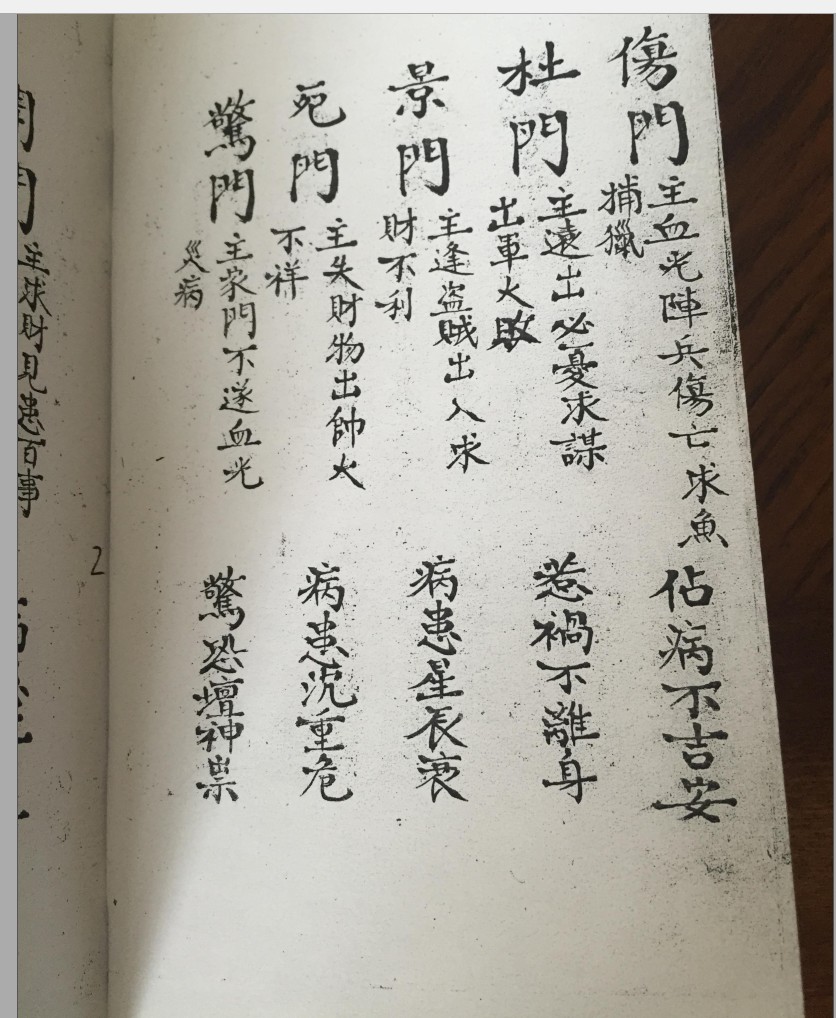 傷門 主血光陣兵傷亡求魚
捕獵
佔病不吉安
杜門 主遠出必憂求謀
出軍大敗
惹禍不離身
景門 主逢盜賊出入求
財不利
病患星辰衰
死門 主失財物出帥大
不祥
病患沉重危
驚門 主家門不遂血光
災病
驚恐壇神祟
2
門 主求財見患百事